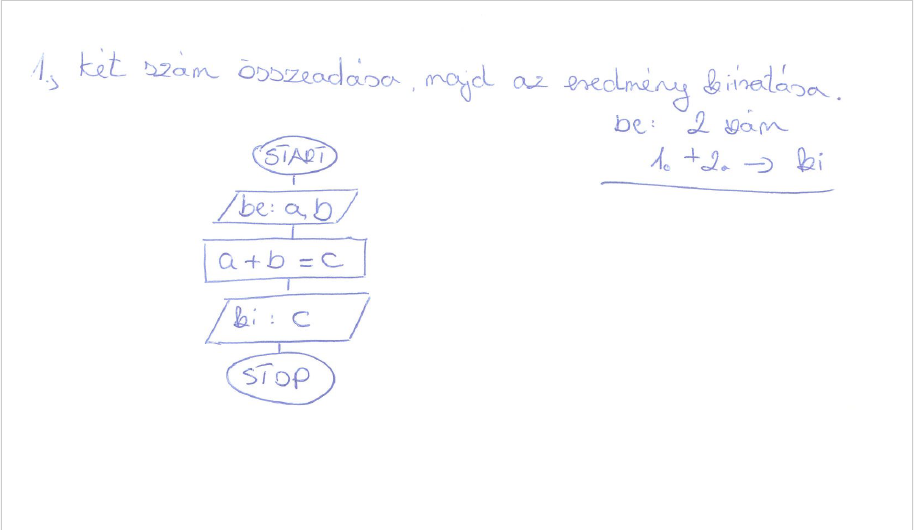 1., két szám összeadása, majd az eredmény kiíratása.
be: 2 szám
1. + 2. → ki
START
be: a, b
a + b = c
ki : c
STOP